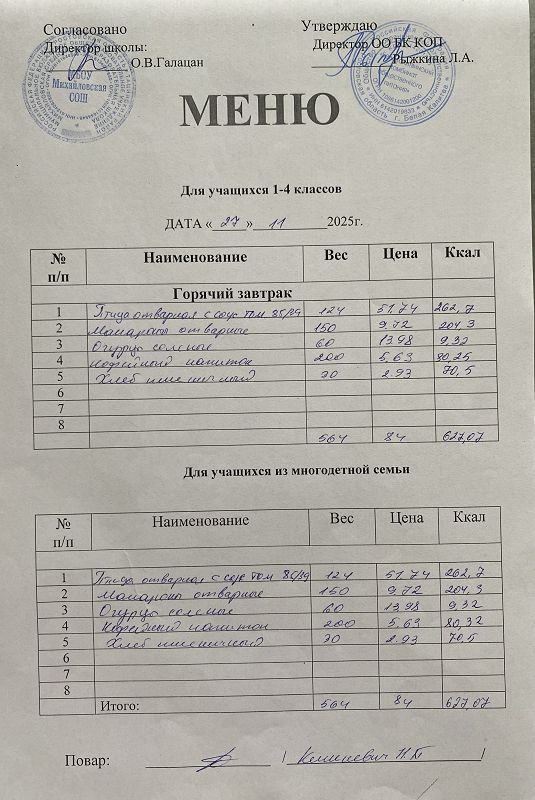 Согласовано Утверждаю
Директор школы: Директор ОО БК КОП
О.В.Галацан Рыжкина Л.А.
МБОУ
Михайловская
СОШ
МЕНЮ
Для учащихся 1-4 классов
ДАТА «27» 11 2025г.
№ п/п Наименование Вес Цена Ккал
Горячий завтрак
1 Птица отварная с соус том 85/39 124 51.74 262,7
2 Макароны отварные 150 9.72 204,3
3 Огурцы соленые 60 13.98 9,32
4 Кофейный напиток 200 5,63 80,25
5 Хлеб пшеничный 30 2.93 70,5
6
7
8
564 84 627,07
Для учащихся из многодетной семьи
№ п/п Наименование Вес Цена Ккал
1 Птица отварная с соус том 85/39 124 51.74 262,7
2 Макароны отварные 150 9,72 204,3
3 Огурцы соленые 60 13,98 9,32
4 Кофейный напиток 200 5.63 80,32
5 Хлеб пшеничный 30 2.93 70,5
6
7
8
Итого: 564 84 627,07
Повар: / /